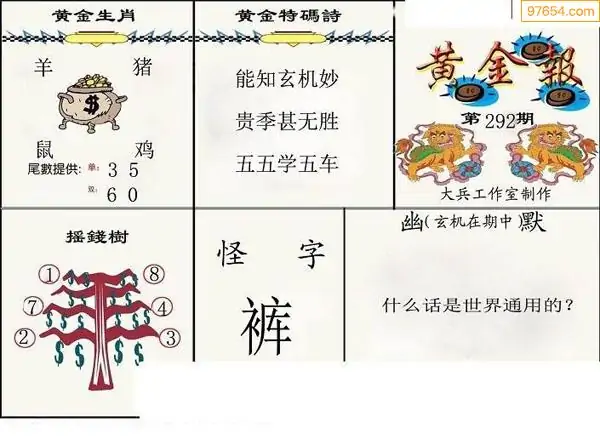 97654.com
黄金生肖
羊 猪
$
鼠 鸡
尾數提供: 单: 3 5
双: 6 0
黄金特碼詩
能知玄机妙
贵季甚无胜
五五学五车
黄金報
第292期
大兵工作室制作
摇錢樹
① ⑧
⑦ ④
② ③
怪字
裤
幽(玄机在期中)默
什么话是世界通用的?